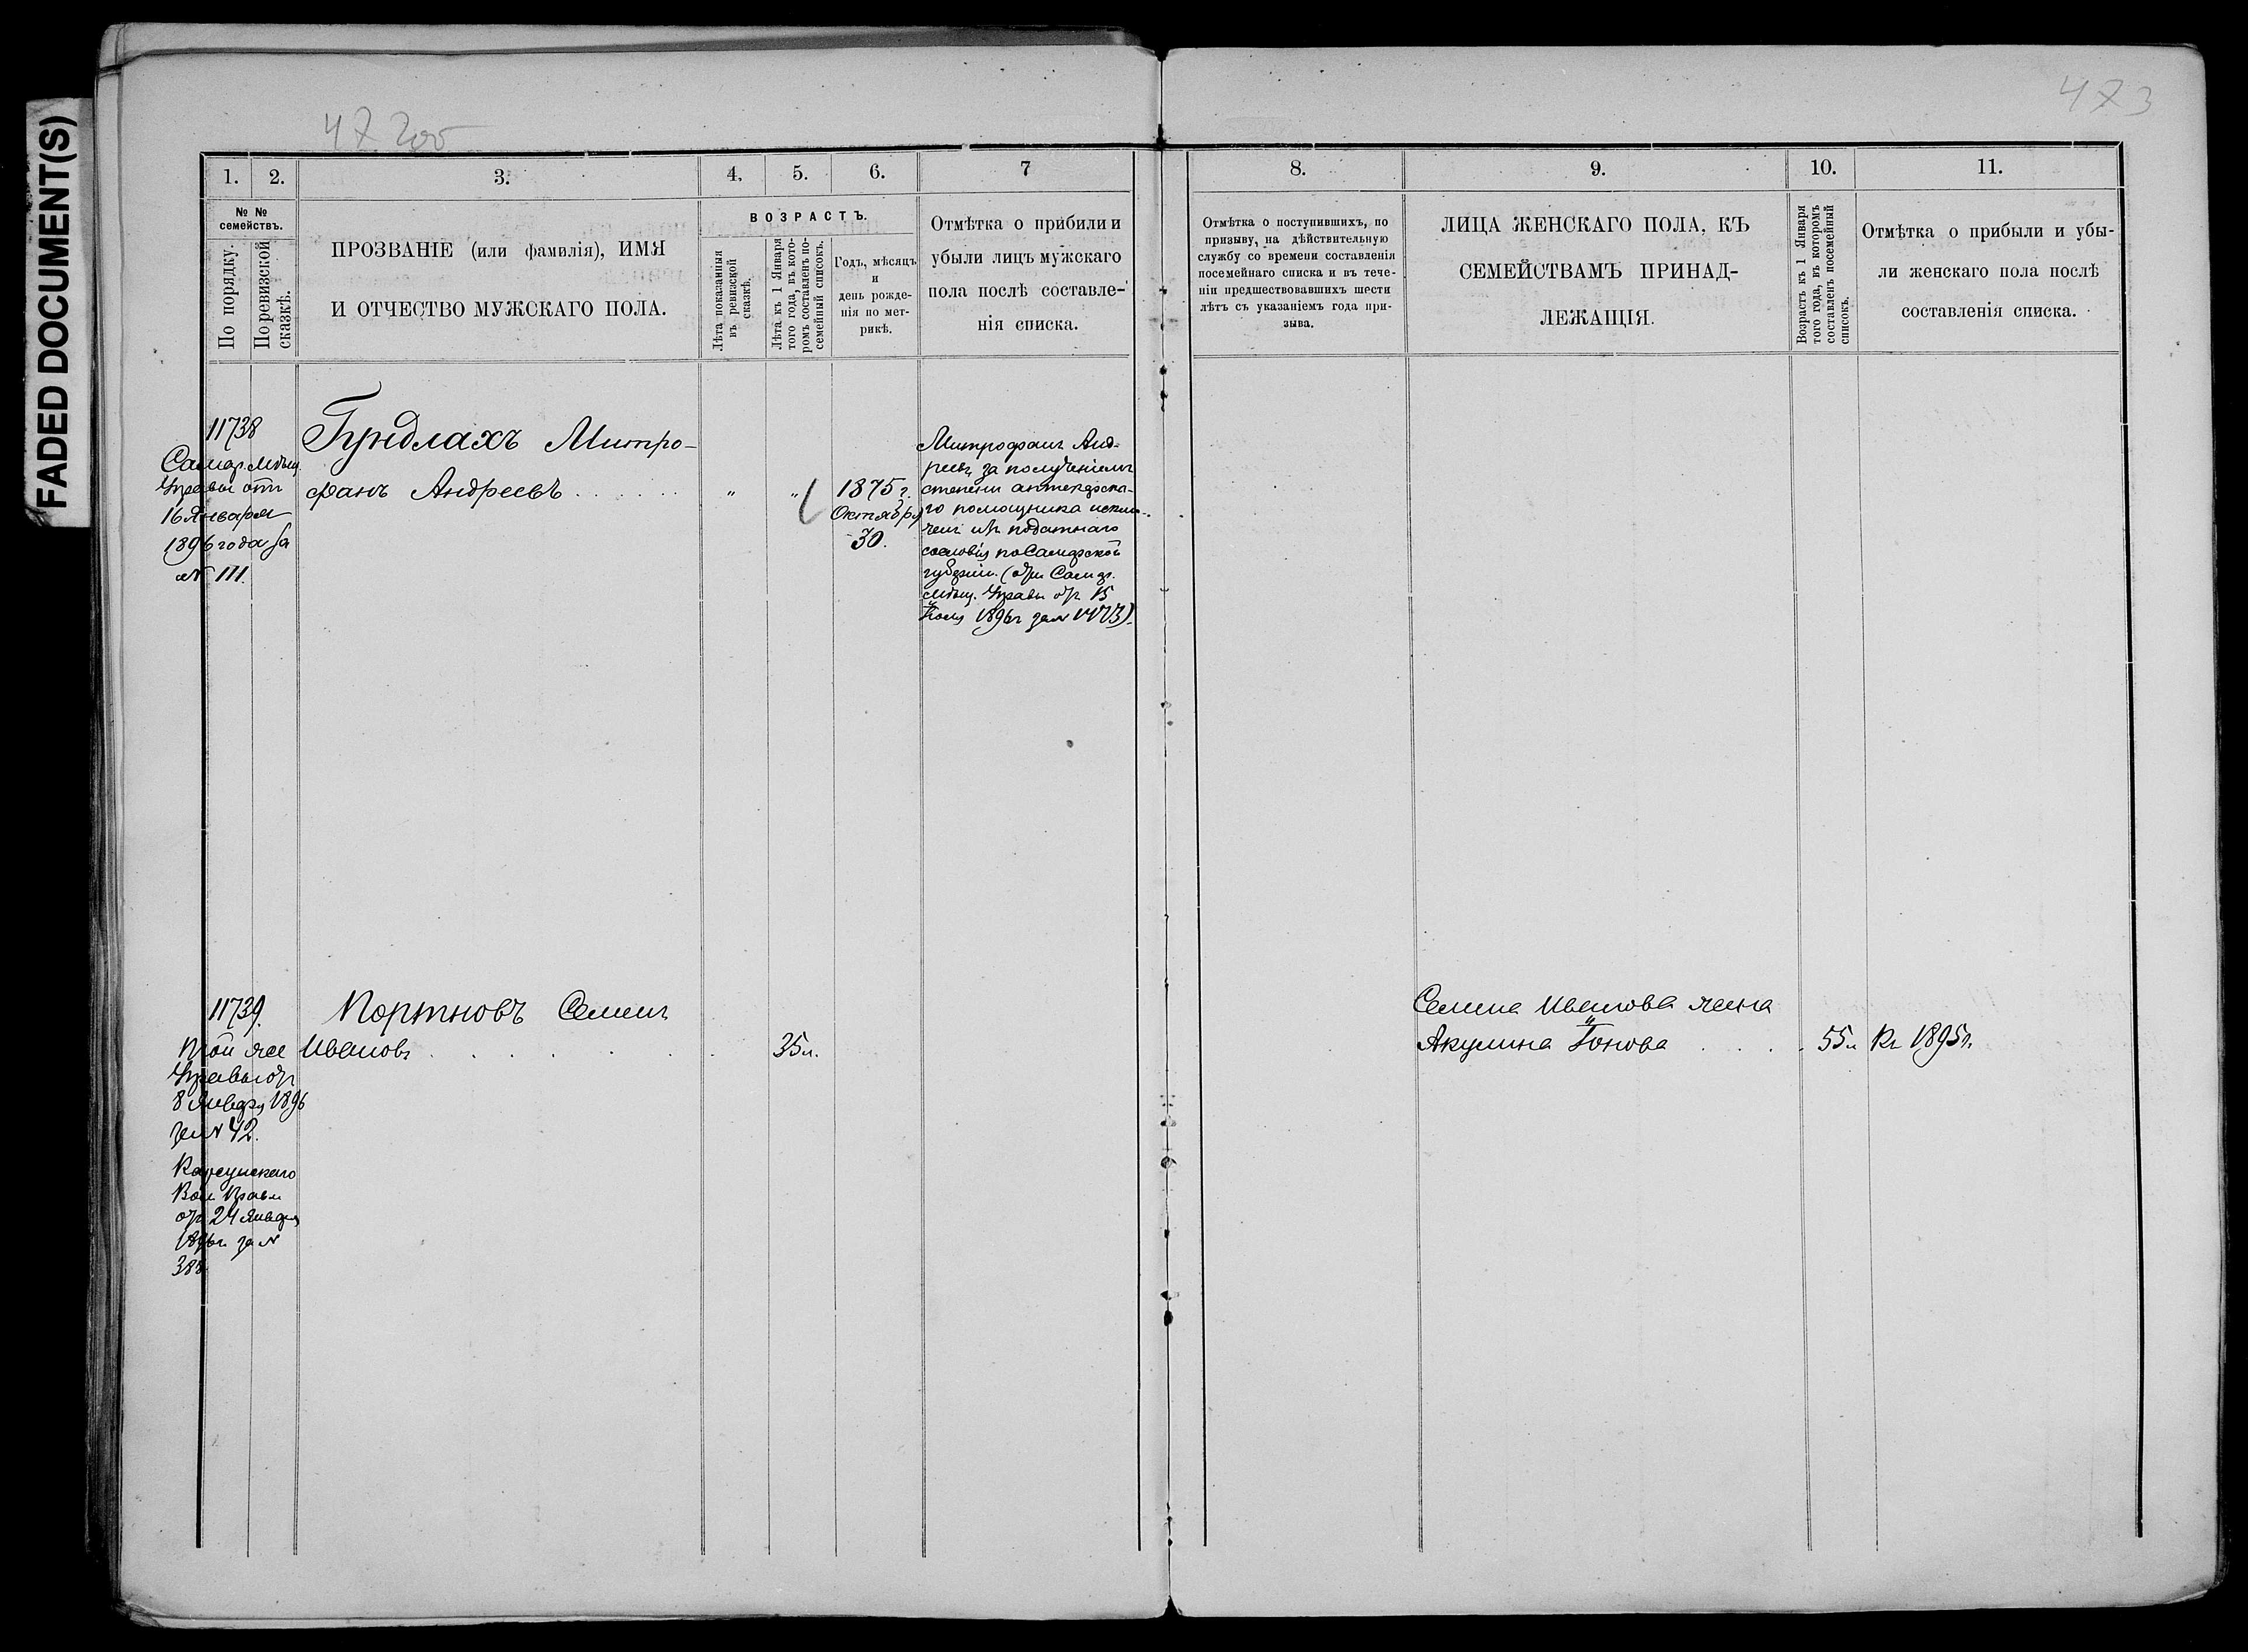 FADED DOCUMENT(S)
473
1.
2.
3.
4.
5.
6.
7
№ №
семействъ.
По порядку.
По ревизской
сказкѣ.
ПРОЗВАНІЕ (или фамилія), ИМЯ
И ОТЧЕСТВО МУЖСКАГО ПОЛА.
ВОЗРАСТЪ.
Лѣта показанныя
въ ревизской
сказкѣ.
Лѣта къ 1 Января
того года, въ кото-
ромъ составленъ по-
семейный списокъ.
Годъ, мѣсяцъ
и
день рожде-
нія по мет-
рикѣ.
Отмѣтка о прибыли и
убыли лицъ мужскаго
пола послѣ составле-
нія списка.
11738
Самар. Мѣщ.
Управы отъ
16 Января
1896 года за
№ 111.
Гундлахъ Митро-
фанъ Андреевъ
„
„
1875 г.
Октября
30.
Митрофанъ Анд-
реевъ за полученіемъ
степени аптекарска-
го помощника исклю-
ченъ изъ податнаго
сословія по Самарской
губерніи. (отн. Самар.
Мѣщ. Управы отъ 15
Іюля 1896 г за № 1473).
11739.
Той же
Управы отъ
8 Января 1896
за № 42.
Карсунскаго
Вол. Правл
отъ 24 Января
1896 г за №
388.
Портновъ Семенъ
Ивановъ
35 л.
8.
9.
10.
11.
Отмѣтка о поступившихъ, по
призыву, на дѣйствительную
службу со времени составленія
посемейнаго списка и въ тече-
ніи предшествовавшихъ шести
лѣтъ съ указаніемъ года при-
зыва.
ЛИЦА ЖЕНСКАГО ПОЛА, КЪ
СЕМЕЙСТВАМЪ ПРИНАД-
ЛЕЖАЩІЯ.
Возрастъ къ 1 Января
того года, въ которомъ
составленъ посемейный
списокъ.
Отмѣтка о прибыли и убы-
ли женскаго пола послѣ
составленія списка.
Семена Иванова жена
Акулина
55 л
Къ 1895 г.